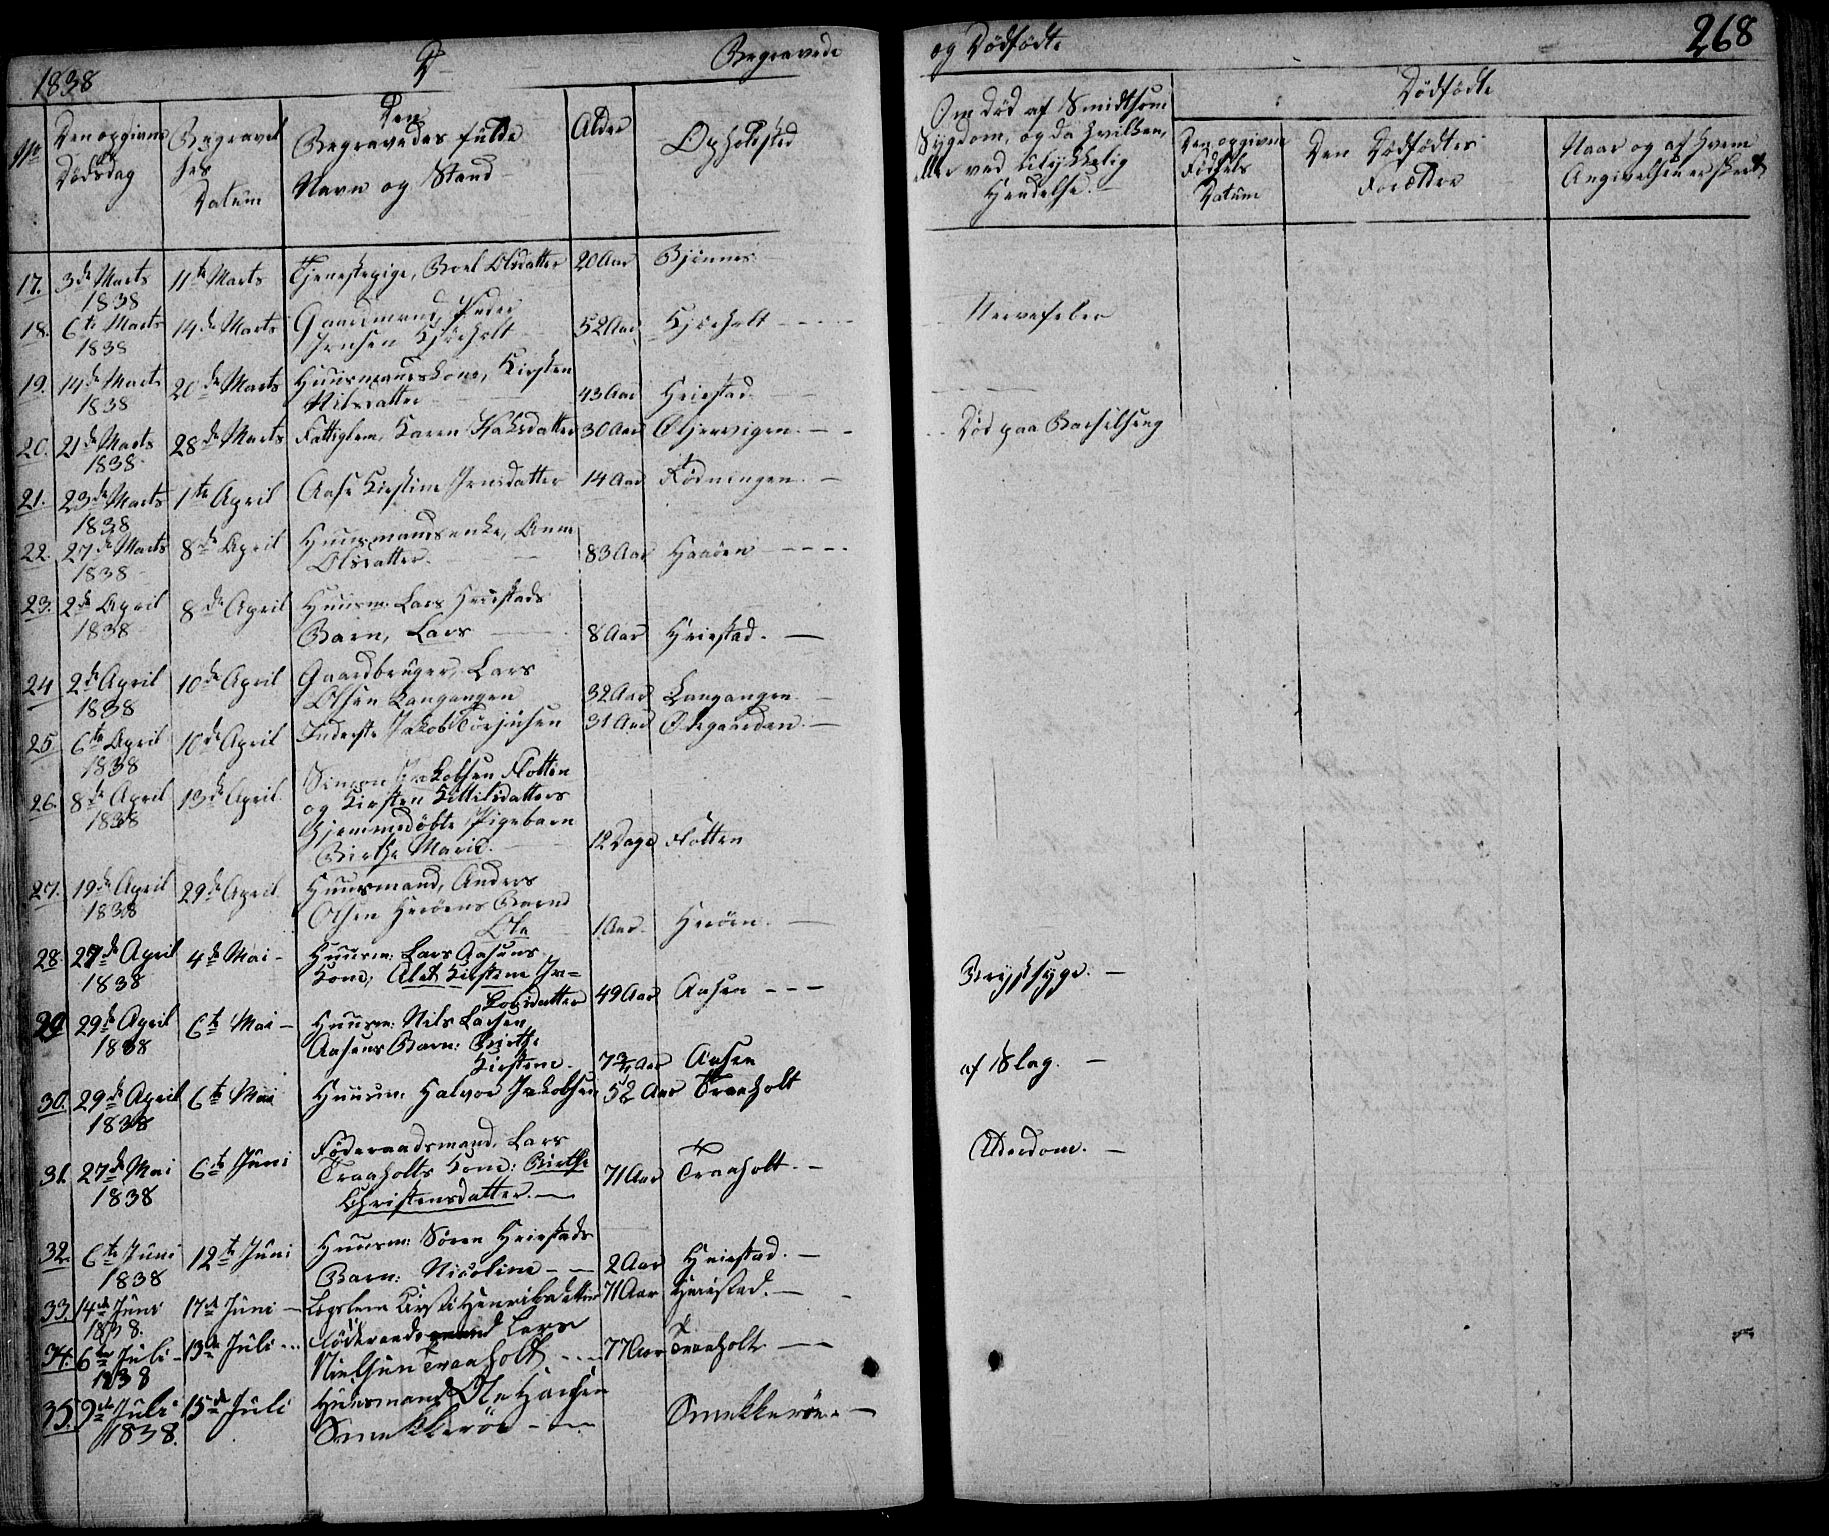 1838 D Begravede
No Den opgivne Dødsdag Begravelses Datum Den Begravedes fulde Navn og Stand Alder Opholdsted
17. 3de Marts 1838 11te Marts Tjenestepige, Boel Olsdatter 20 Aar Bjønnes
18. 6te Marts 1838 14de Marts Gaardmand, Peder Jensen Kjøeholt 52 Aar Kjøeholt
19. 14de Marts 1838 20de Marts Huusmandskone, Kirsten Nilsdatter 43 Aar Heiestad
20. 21de Marts 1838 28de Marts Fattiglem, Karen Isaksdatter 30 Aar Oljervigen
21. 23de Marts 1838 1te April Aase Kirstine Jensdatter 14 Aar Rødningen
22. 27de Marts 1838 8de April Huusmandsenke, Anne Olsdatter 83 Aar Haaøen
23. 2de April 1838 8de April Huusm: Lars Heiestads Barn, Lars 8 Aar Heiestad.
24 2de April 1838 10de April Gaardbruger, Lars Olsen Langangen 32 Aar Langangen
25 6te April 1838 10de April Inderste Jakob Torjusen 31 Aar Ødegaarden
26. 8de April 1838 13de April Simon Jakobsen Flotten og Kirsten Kittilsdatters Hjemmedøbte Pigebarn Birthe Marie. 12 Dage Flotten
27. 19de April 1838 29de April Huusmand, Anders Olsen Herøens Barn Ole 1 Aar Herøen.
28. 27de April 1838 4de Mai Huusm: Lars Aasens Kone, Alet Kirstine Jakobsdatter 49 Aar Aasen
29 29de April 1838 6te Mai Huusm: Nils Larsen Aasens Barn: Birthe Kirstine 7 3/4 Aar Aasen
30. 29de April 1838 6te Mai Huusm: Halvor Jakobsen 52 Aar Traaholt
31. 27de Mai 1838 6te Juni Føderaadsmand, Lars Traaholts Kone: Birthe Christensdatter. 71 Aar Traaholt.
32. 6te Juni 1838 12te Juni Huusm: Søren Heiestads Barn: Nicoline 2 Aar Heiestad.
33. 14de Juni 1838. 17de Juni Lægslem Kirsti Henriksdatter 71 Aar Heiestad.
34. 6te Juli 1838 13de Juli Föderaadsmand Lars Nielsen Traaholt 77 Aar Traaholt
35. 9de Juli 1838. 15de Juli Huusmand Ole Hansen Smekkeröe Smekkeröe
og Dødfødte 268
Om død af Smidtsom Sygdom, og da hvilken, eller ved Ulykkelig Hendelse.
Dødfødte
Den opgivne Fødsels Datum Den Dødfødtes Forældre Naar og af Hvem Angivelsen er skeet
Nervefeber
Død paa Barselseng
Brystsyge.
af Slag.
Alderdom.